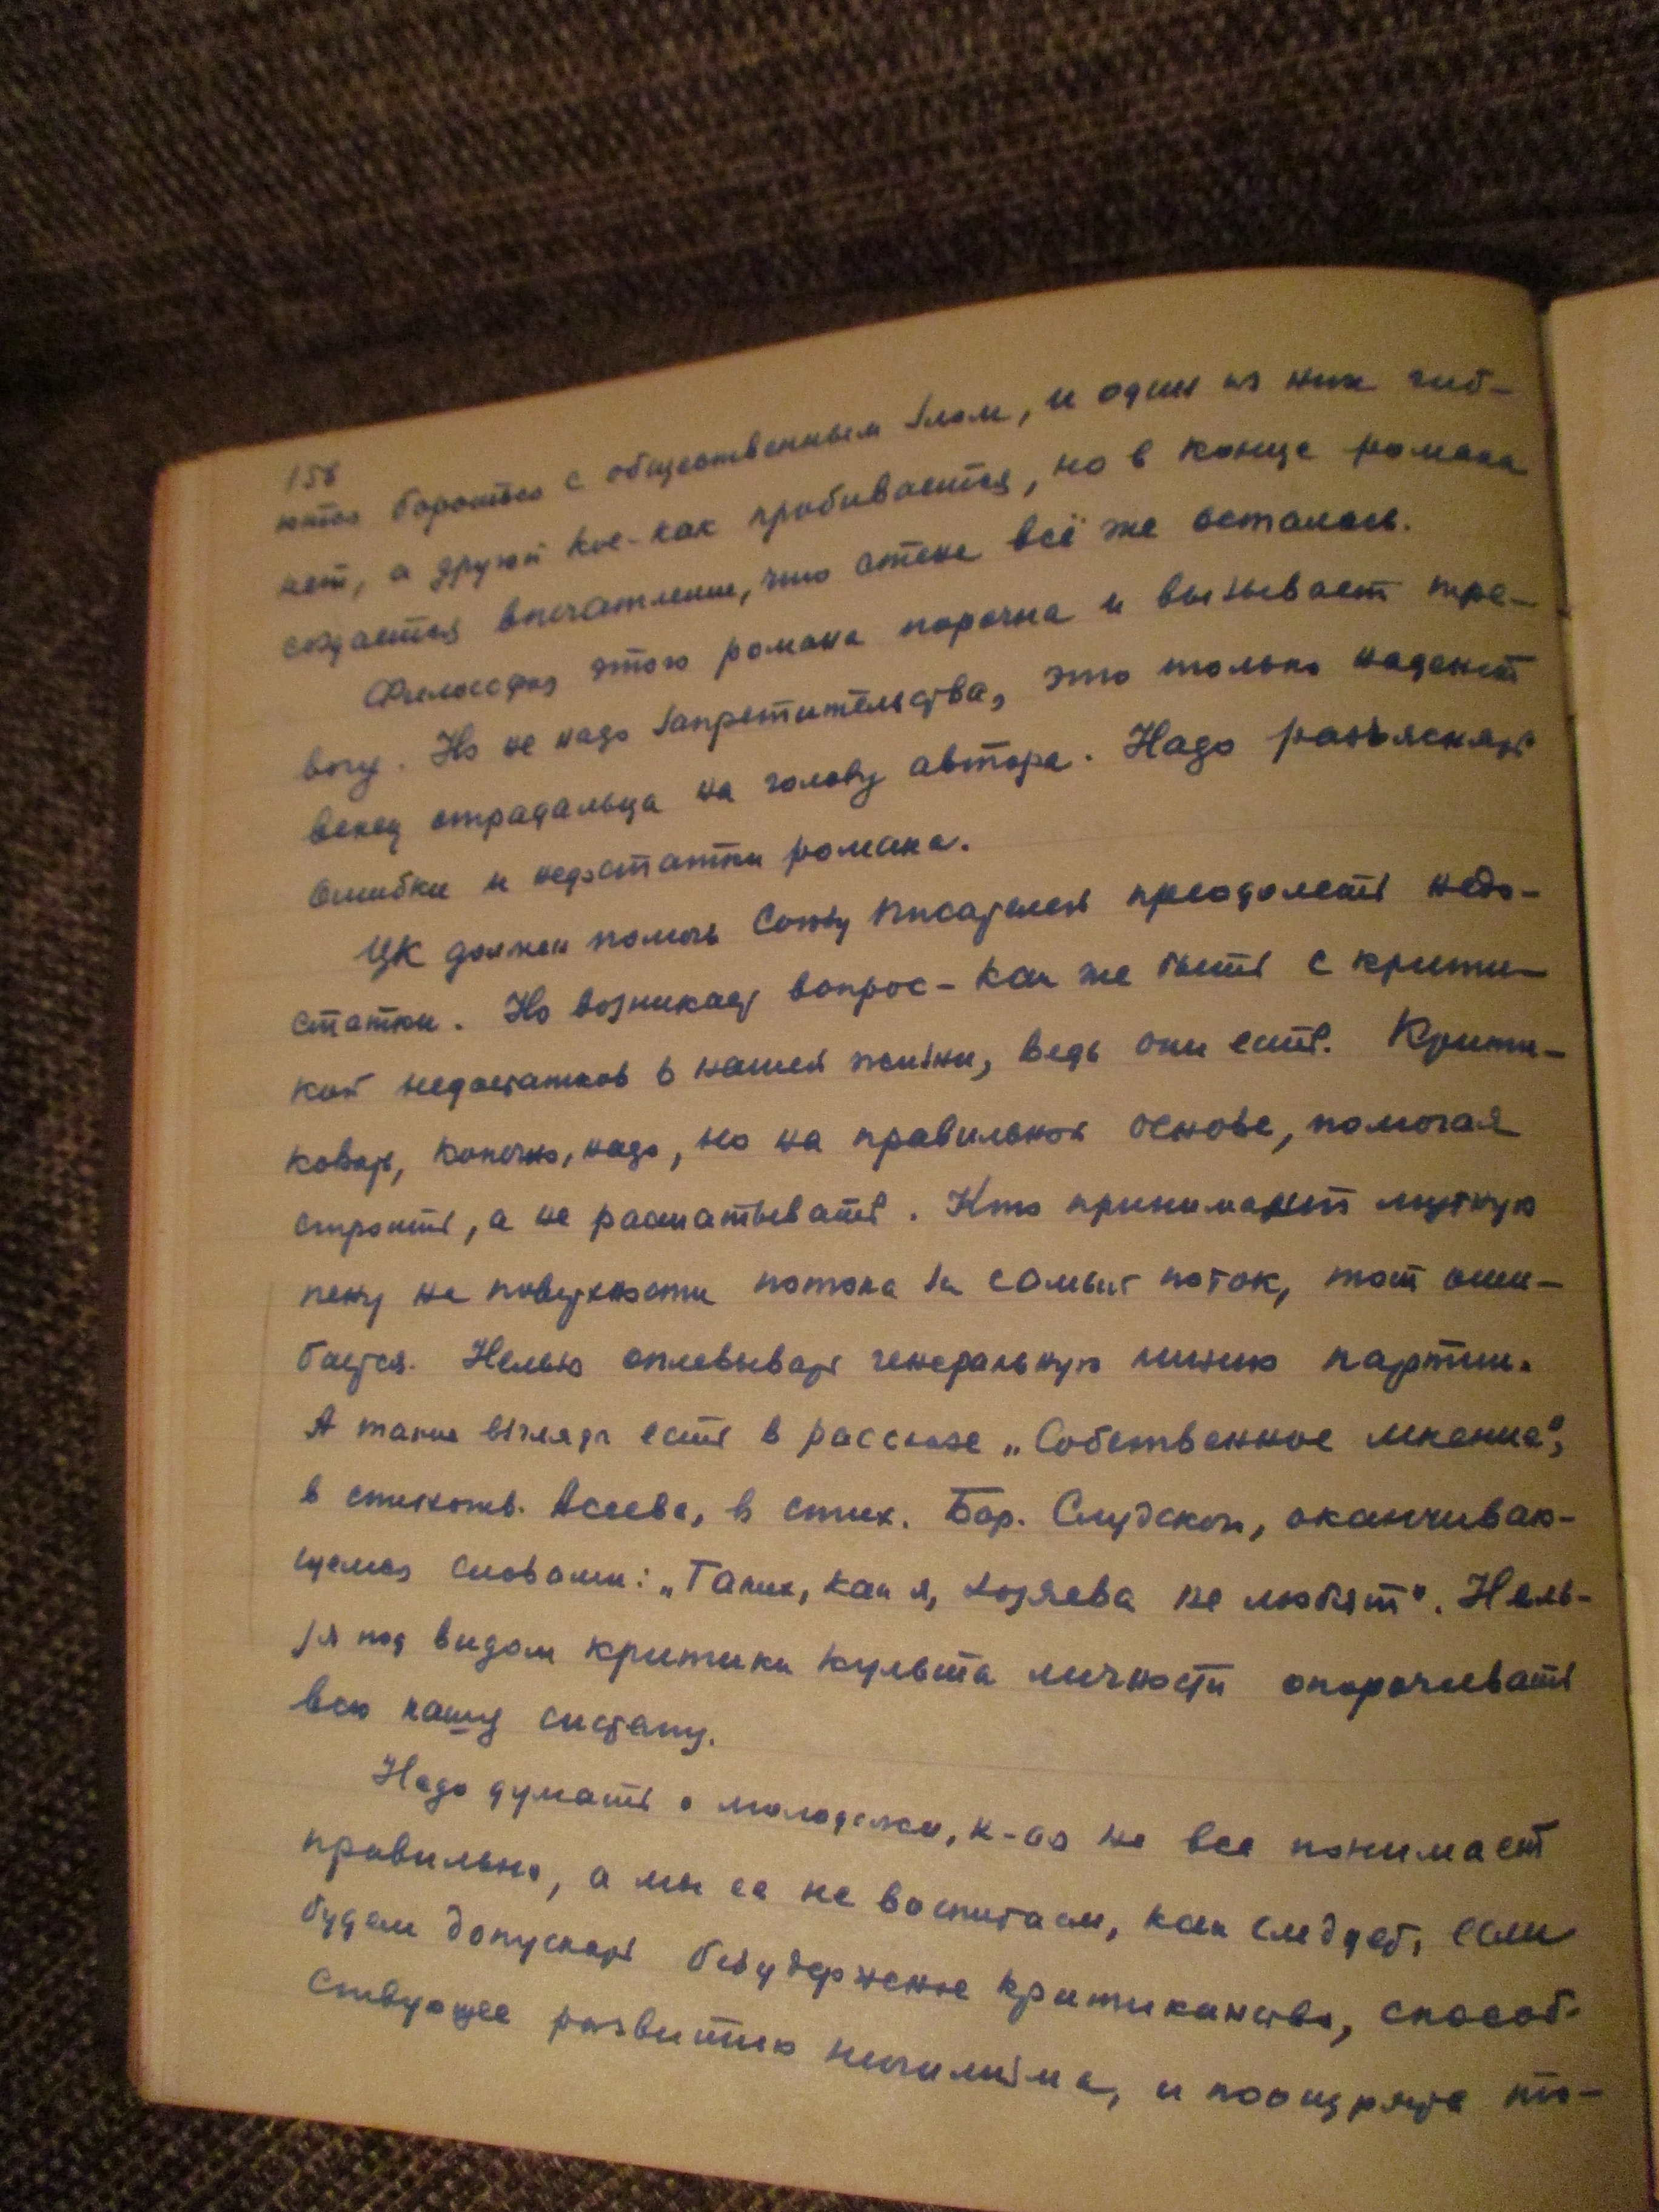 158
ются бороться с общественным злом, и один из них гиб-
нет, а другой кое-как пробивается, но в конце романа
создается впечатление, что стена всё же осталась.
Философия этого романа порочна и вызывает тре-
вогу. Но не надо запретительства, это только наденет
венец страдальца на голову автора. Надо разъяснять
ошибки и недостатки романа.
ЦК должен помочь Союзу писателей преодолеть недо-
статки. Но возникает вопрос - как же быть с крити-
кой недостатков в нашей жизни, ведь они есть. Крити-
ковать, конечно, надо, но на правильной основе, помогая
строить, а не расшатывать. Кто принимает мутную
пену на поверхности потока за самый поток, тот оши-
бается. Нельзя оплевывать генеральную линию партии.
А такие взгляды есть в рассказе „Собственное мнение",
в стихотв. Асеева, в стих. Бор. Слуцкого, оканчиваю-
щемся словами: „Таких, как я, хозяева не любят". Нель-
зя под видом критики культа личности опорочивать
всю нашу систему.
Надо думать о молодежи, к-ая не все понимает
правильно, а мы ее не воспитаем, как следует, если
будем допускать безудержное критиканство, способ-
ствующее развитию нигилизма, и поощрять то-